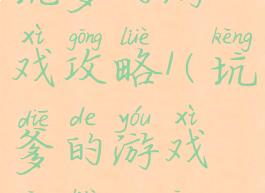 xì gōng lüè kēng
戏攻略1(坑
diē de yóu xì
爹的游戏